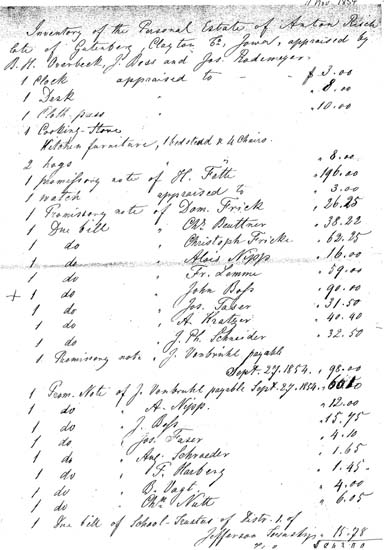 Nov. 1854
Inventory of the Personal Estate of Anton Risch
late of Gutenberg, Clayton Co. Jowa, appraised by
B. H. Overbeck, J. Boss and Jos. Rademeyer.
1 Clock appraised to - $ 3.00
1 Desk " 8.00
1 Cloth press " 10.00
1 Cooking-Stove
Kitchen furniture, 1 bedstead & 4 Chairs.
2 hogs " 8.00
1 promissory note of H. Fätt " 196.00
1 watch appraised to " 3.00
1 Promissory note of Dom. Frick " 26.25
1 Due bill " Chr. Beuttner " 38.22
1 do " Christoph Fricke " 62.25
1 do " Alois Nipp " 16.00
1 do " Fr. Lemme " 59.00
+ 1 do " John Boss " 90.00
1 do " Jos. Taser " 31.50
1 do " A. Kratzer " 40.40
1 do " J. Ph. Schneider " 32.50
1 Promissory note " J. Vonbruhl payable
Sept. 27. 1854. " 98.00
1 Prom. Note of J. Vonbruhl payable Sept. 27. 1854.
1 do " A. Nipp. " 12.00
1 do " J. Boss " 15.75
1 do " Jos. Taser " 4.10
1 do " Aug. Schroeder " 1.65
1 do " F. Harberg " 1.45
1 do " B. Vogt " 4.00
1 do " Chn. Nutt " 6.05
1 Due bill of School-Trustees of Distr. 1. of
Jefferson Township " 15.78